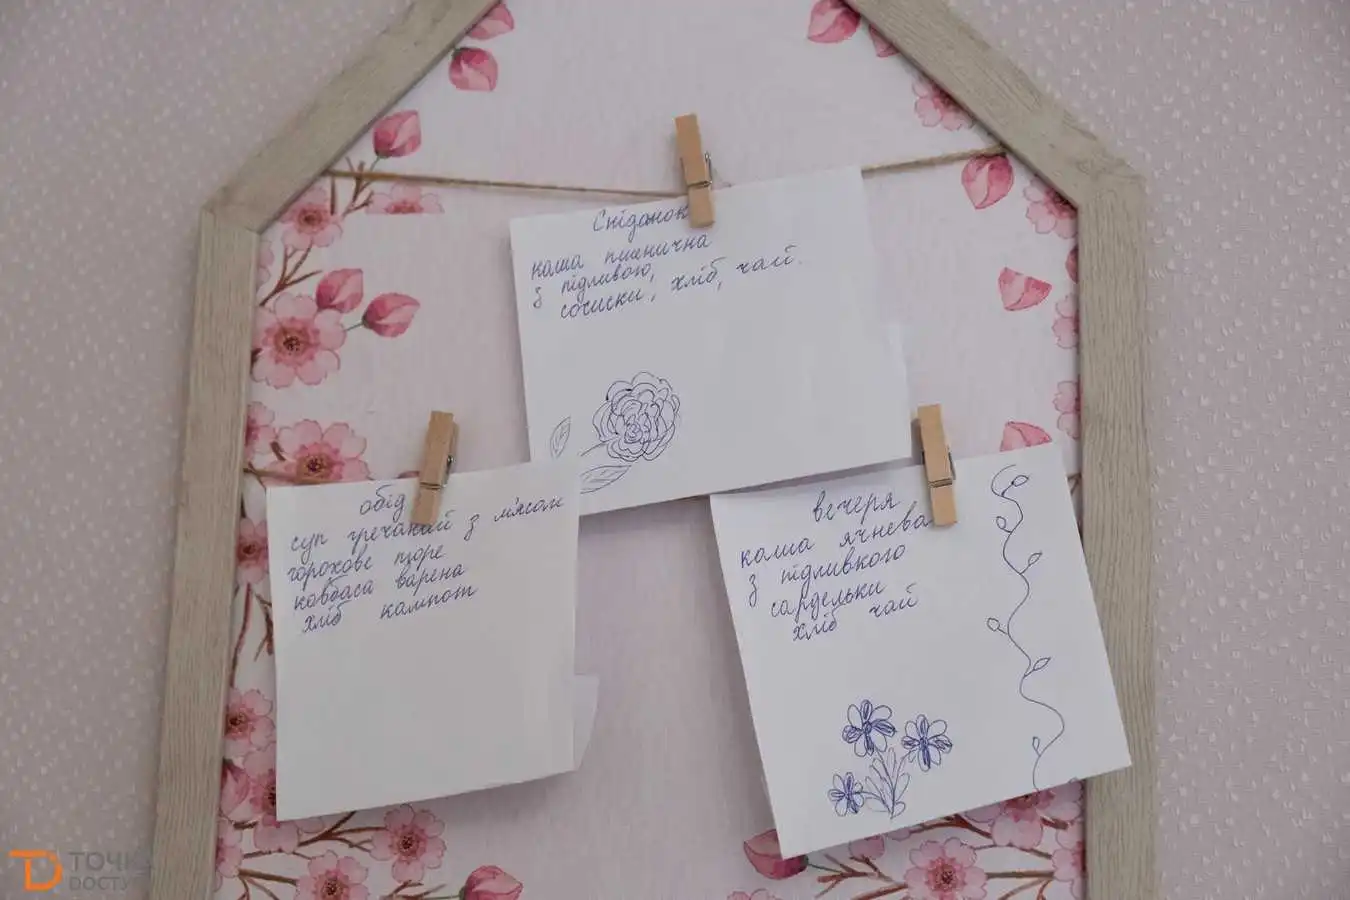 Сніданок
каша пшенична
з підливою,
сосиски, хліб, чай.
обід
суп гречаний з м'ясом
горохове пюре
ковбаса варена
хліб компот
вечеря
каша ячнева
з підливкою
сардельки
хліб чай
ТОЧК
DОСТУ